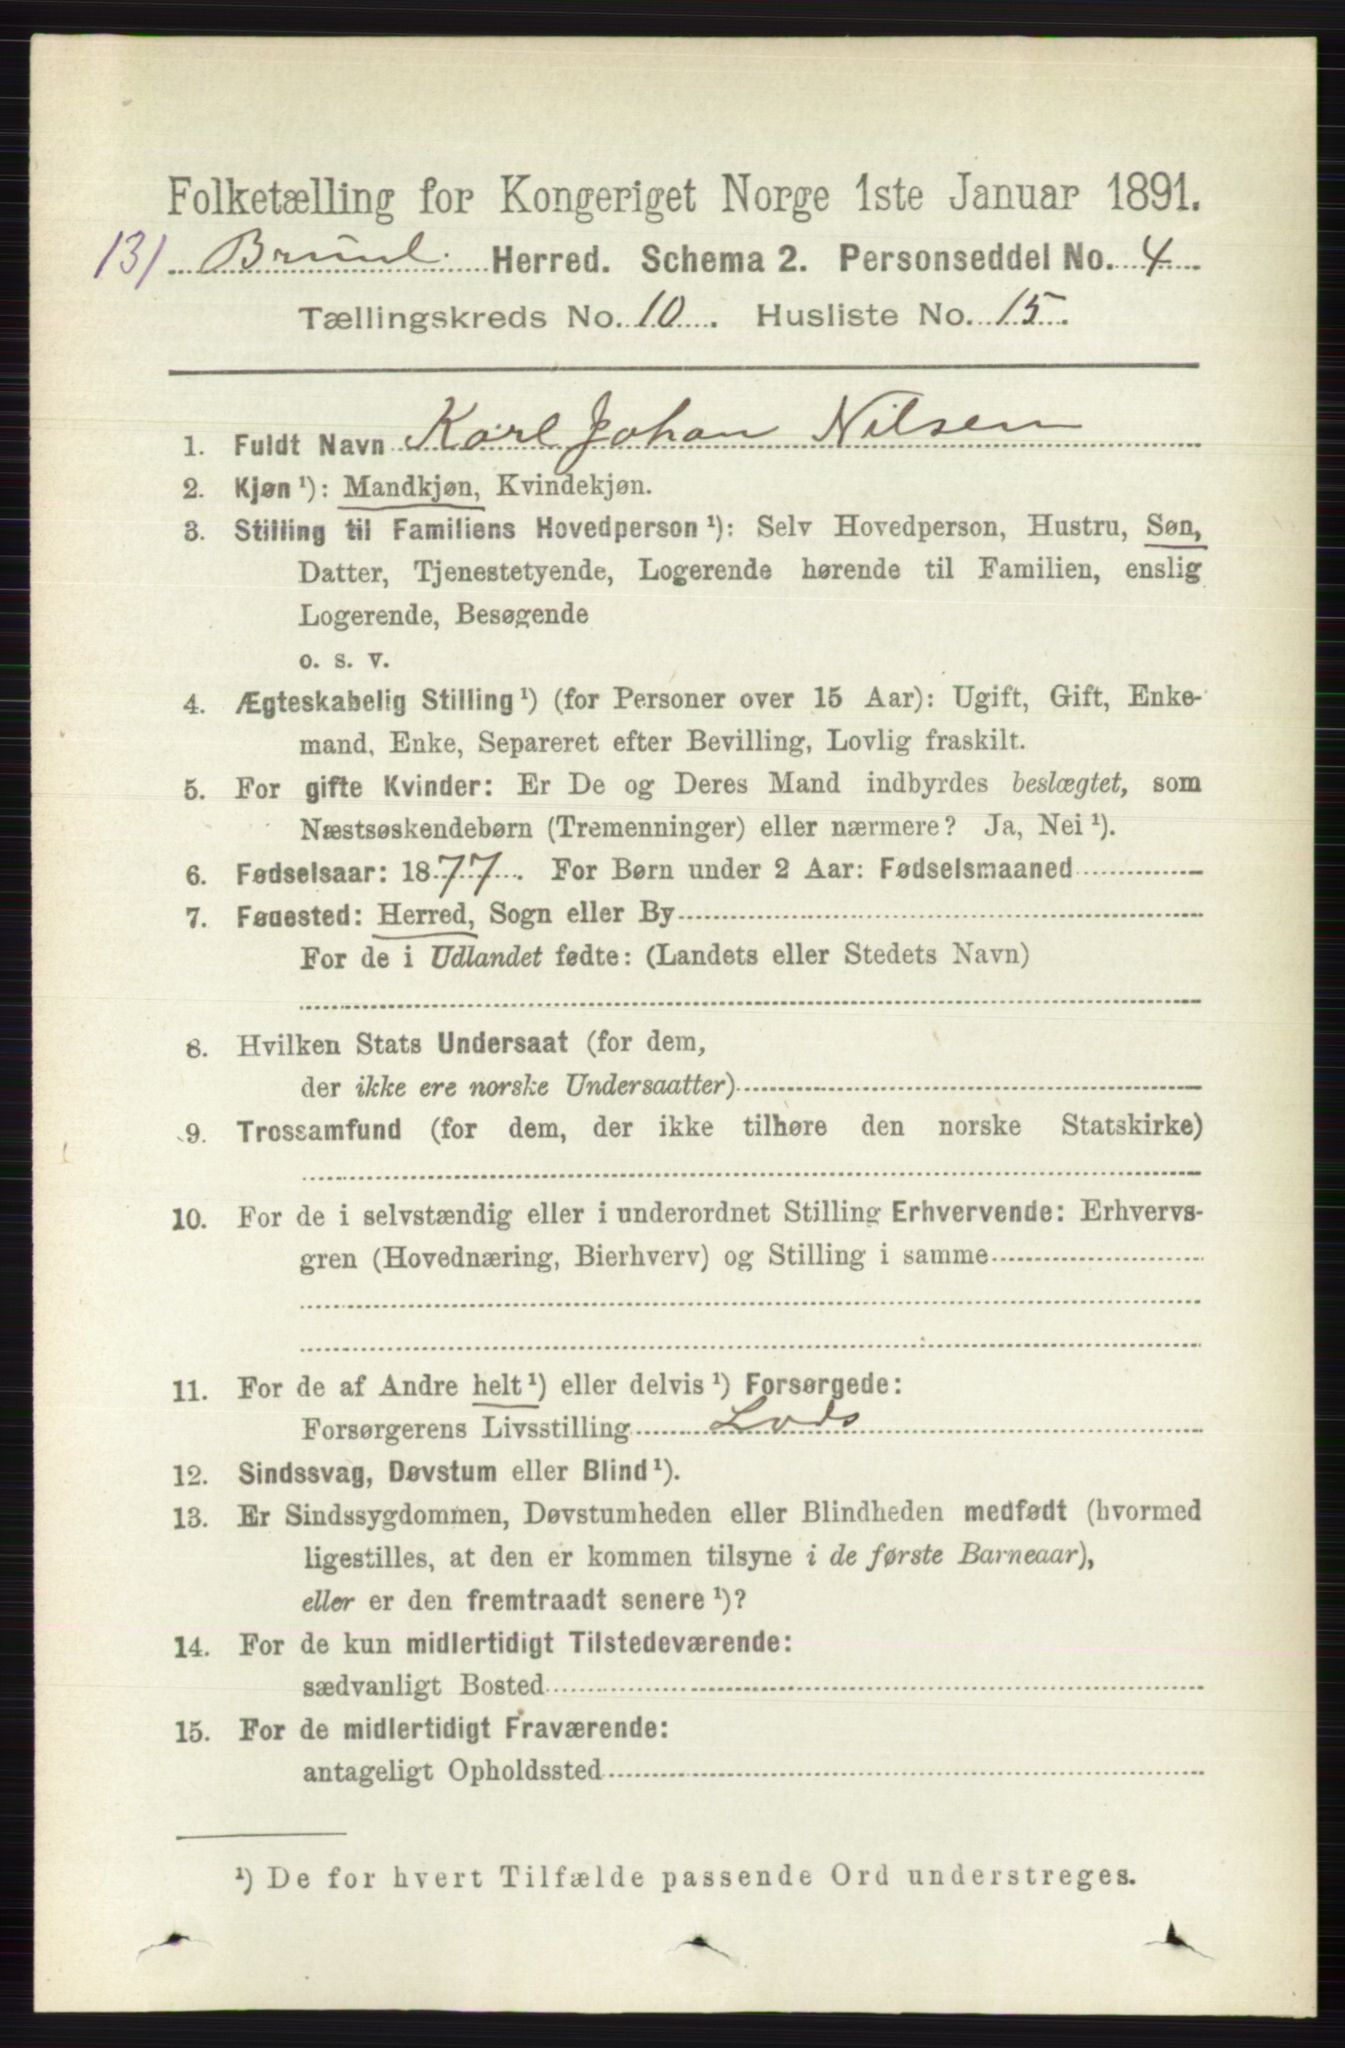 Folketælling for Kongeriget Norge 1ste Januar 1891.
131 Brunl. Herred. Schema 2. Personseddel No. 4
Tællingskreds No. 10. Husliste No. 15.
1. Fuldt Navn Karl Johan Nilsen
2. Kjøn ¹): Mandkjøn, Kvindekjøn.
3. Stilling til Familiens Hovedperson ¹): Selv Hovedperson, Hustru, Søn,
Datter, Tjenestetyende, Logerende hørende til Familien, enslig
Logerende, Besøgende
o. s. v.
4. Ægteskabelig Stilling ¹) (for Personer over 15 Aar): Ugift, Gift, Enke-
mand, Enke, Separeret efter Bevilling, Lovlig fraskilt.
5. For gifte Kvinder: Er De og Deres Mand indbyrdes beslægtet, som
Næstsøskendebørn (Tremenninger) eller nærmere? Ja, Nei ¹).
6. Fødselsaar: 1877. For Børn under 2 Aar: Fødselsmaaned
7. Fødested: Herred, Sogn eller By
For de i Udlandet fødte: (Landets eller Stedets Navn)
8. Hvilken Stats Undersaat (for dem,
der ikke ere norske Undersaatter)
9. Trossamfund (for dem, der ikke tilhøre den norske Statskirke)
10. For de i selvstændig eller i underordnet Stilling Erhvervende: Erhvervs-
gren (Hovednæring, Bierhverv) og Stilling i samme
11. For de af Andre helt ¹) eller delvis ¹) Forsørgede:
Forsørgerens Livsstilling Lods
12. Sindssvag, Døvstum eller Blind ¹).
13. Er Sindssygdommen, Døvstumheden eller Blindheden medfødt (hvormed
ligestilles, at den er kommen tilsyne i de første Barneaar),
eller er den fremtraadt senere ¹)?
14. For de kun midlertidigt Tilstedeværende:
sædvanligt Bosted
15. For de midlertidigt Fraværende:
antageligt Opholdssted
¹) De for hvert Tilfælde passende Ord understreges.